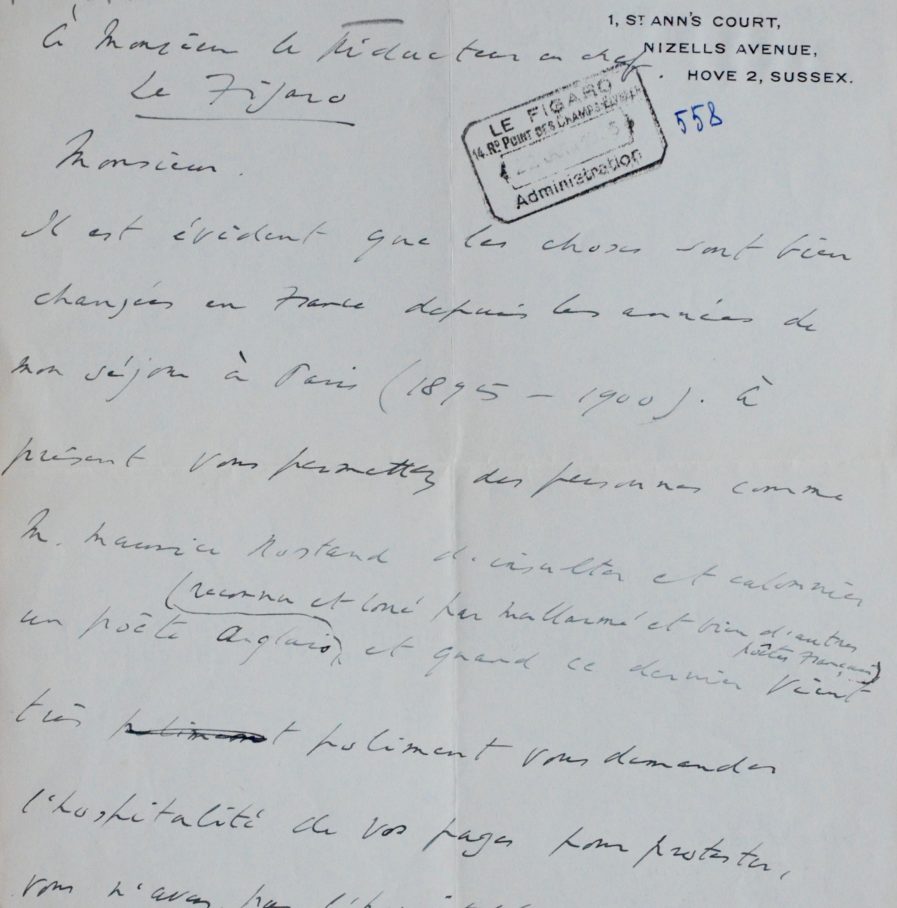 1, ST ANN'S COURT,
NIZELLS AVENUE,
HOVE 2, SUSSEX.
À Monsieur le Rédacteur en chef.
Le Figaro
LE FIGARO
14. Rd POINT DES CHAMPS-ELYSÉES
Administration
558
Monsieur.
Il est évident que les choses sont bien
changées en France depuis les années de
mon séjour à Paris (1895 - 1900). À
présent vous permettez des personnes comme
M. Maurice Rostand d'insulter et calomnier
(reconnu et loué par Mallarmé et bien d'autres
poëtes Français)
un poëte Anglais, et quand ce dernier vient
très poliment poliment vous demander
l'hospitalité de vos pages pour protester,
vous n'avez pas